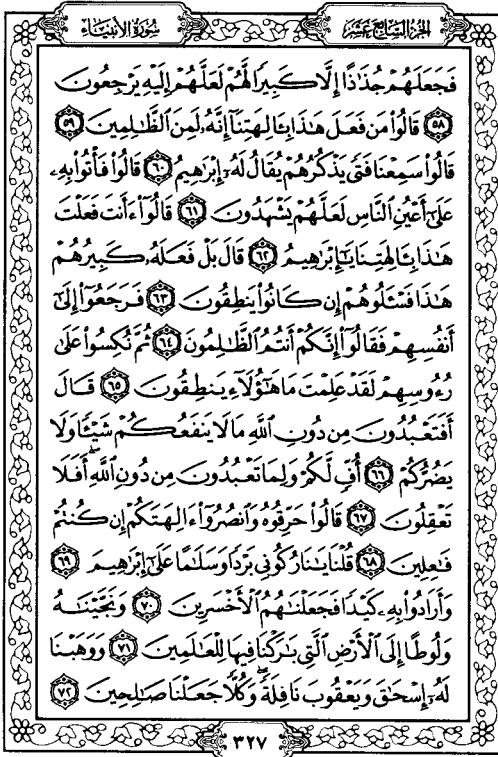 سُورَةُ الأَنبِيَاءِ
الجُزءُ السَّابِعُ عَشَرَ
فَجَعَلَهُمْ جُذَٰذًا إِلَّا كَبِيرًا لَّهُمْ لَعَلَّهُمْ إِلَيْهِ يَرْجِعُونَ
٥٨ قَالُوا۟ مَن فَعَلَ هَٰذَا بِـَٔالِهَتِنَآ إِنَّهُۥ لَمِنَ ٱلظَّٰلِمِينَ ٥٩
قَالُوا۟ سَمِعْنَا فَتًى يَذْكُرُهُمْ يُقَالُ لَهُۥٓ إِبْرَٰهِيمُ ٦٠ قَالُوا۟ فَأْتُوا۟ بِهِۦ
عَلَىٰٓ أَعْيُنِ ٱلنَّاسِ لَعَلَّهُمْ يَشْهَدُونَ ٦١ قَالُوٓا۟ ءَأَنتَ فَعَلْتَ
هَٰذَا بِـَٔالِهَتِنَا يَٰٓإِبْرَٰهِيمُ ٦٢ قَالَ بَلْ فَعَلَهُۥ كَبِيرُهُمْ
هَٰذَا فَسْـَٔلُوهُمْ إِن كَانُوا۟ يَنطِقُونَ ٦٣ فَرَجَعُوٓا۟ إِلَىٰٓ
أَنفُسِهِمْ فَقَالُوٓا۟ إِنَّكُمْ أَنتُمُ ٱلظَّٰلِمُونَ ٦٤ ثُمَّ نُكِسُوا۟ عَلَىٰ
رُءُوسِهِمْ لَقَدْ عَلِمْتَ مَا هَٰٓؤُلَآءِ يَنطِقُونَ ٦٥ قَالَ
أَفَتَعْبُدُونَ مِن دُونِ ٱللَّهِ مَا لَا يَنفَعُكُمْ شَيْـًٔا وَلَا
يَضُرُّكُمْ ٦٦ أُفٍّ لَّكُمْ وَلِمَا تَعْبُدُونَ مِن دُونِ ٱللَّهِ ۖ أَفَلَا
تَعْقِلُونَ ٦٧ قَالُوا۟ حَرِّقُوهُ وَٱنصُرُوٓا۟ ءَالِهَتَكُمْ إِن كُنتُمْ
فَٰعِلِينَ ٦٨ قُلْنَا يَٰنَارُ كُونِى بَرْدًا وَسَلَٰمًا عَلَىٰٓ إِبْرَٰهِيمَ ٦٩
وَأَرَادُوا۟ بِهِۦ كَيْدًا فَجَعَلْنَٰهُمُ ٱلْأَخْسَرِينَ ٧٠ وَنَجَّيْنَٰهُ
وَلُوطًا إِلَى ٱلْأَرْضِ ٱلَّتِى بَٰرَكْنَا فِيهَا لِلْعَٰلَمِينَ ٧١ وَوَهَبْنَا
لَهُۥٓ إِسْحَٰقَ وَيَعْقُوبَ نَافِلَةً ۖ وَكُلًّا جَعَلْنَا صَٰلِحِينَ ٧٢
٣٢٧